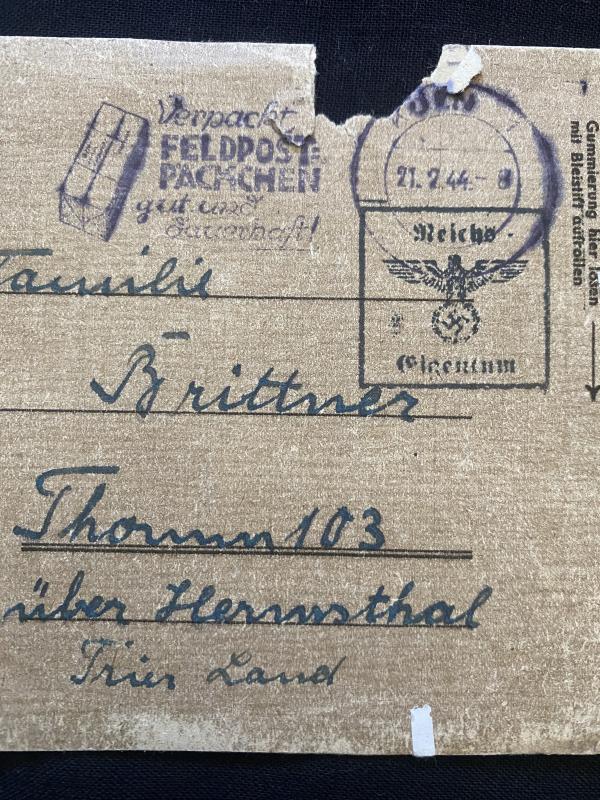 Verpackt
FELDPOST=
PÄCKCHEN
gut und
dauerhaft!
21.2.44.- 8
Reichs-
Eigentum
Gummierung hier lösen
mit Bleistift aufrollen
Familie
Brittner
Thomm 103
über Hermesthal
Trier Land